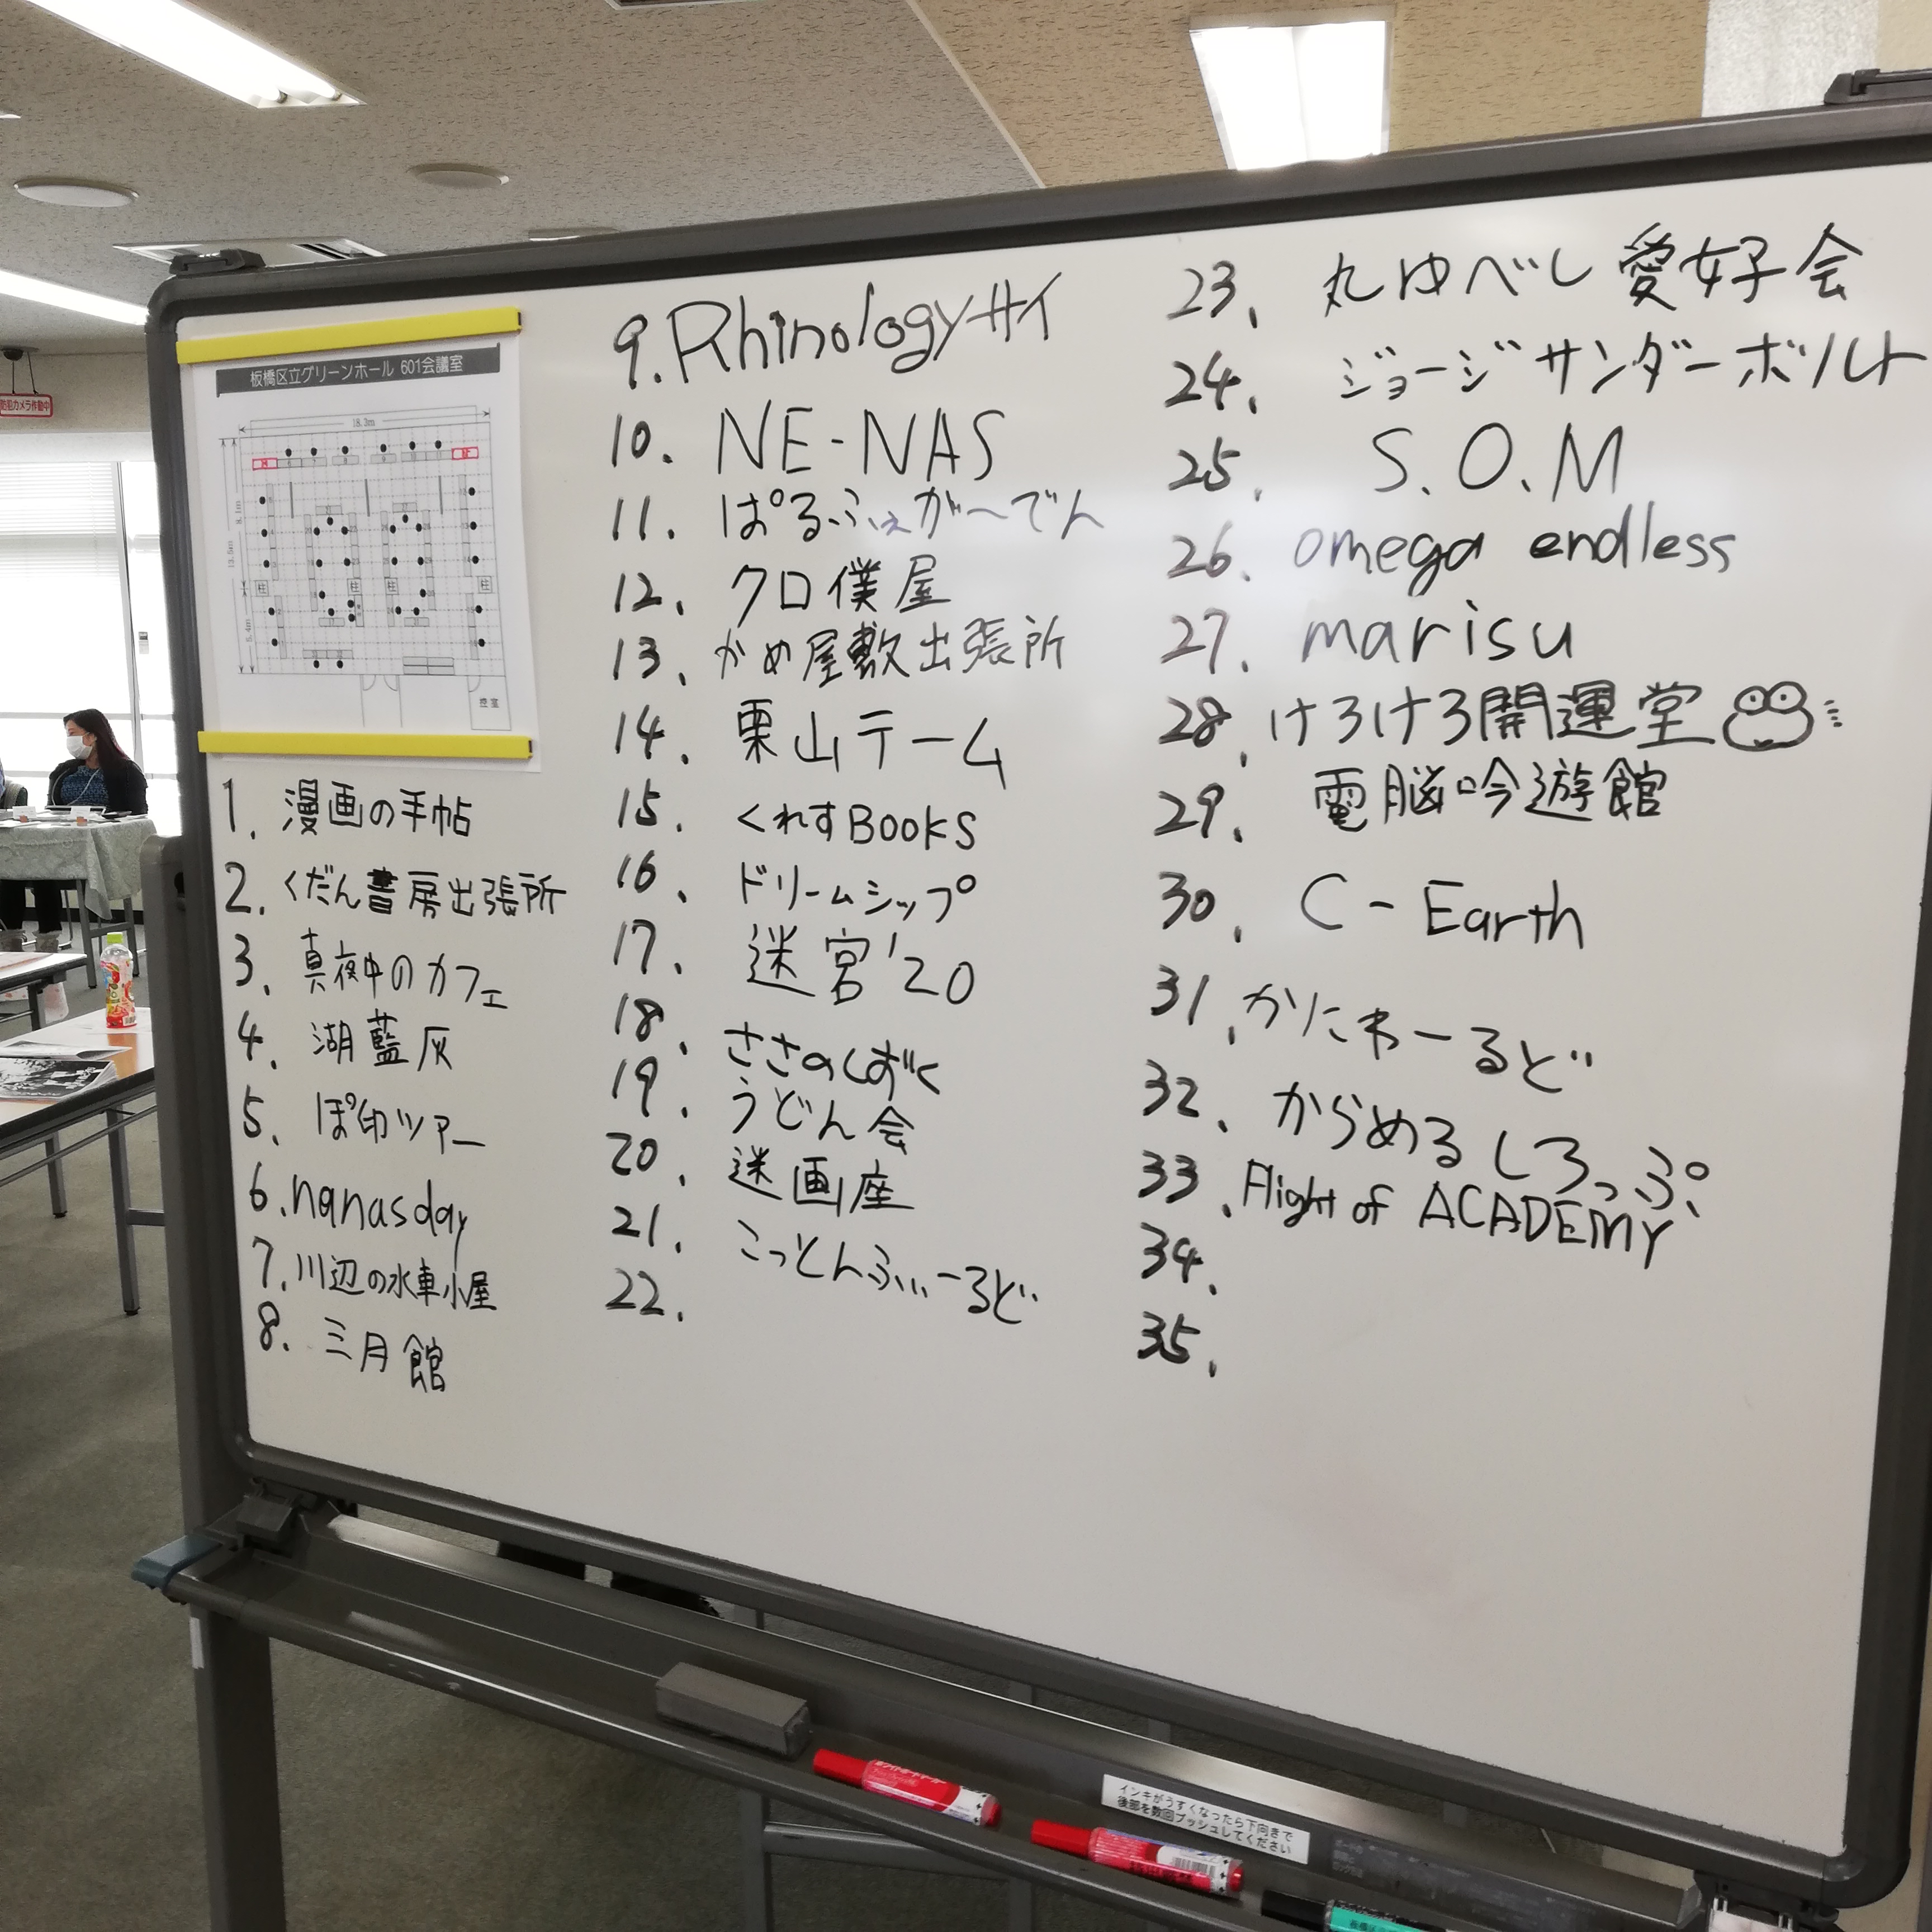 防犯カメラ作動中
板橋区立グリーンホール 601会議室
18.3m
柱
柱
柱
柱
控室
1. 漫画の手帖
2. くだん書房出張所
3. 真夜中のカフェ
4. 湖藍灰
5. ぽ印ツアー
6. nanasday
7. 川辺の水車小屋
8. 三月館
9. Rhinologyサイ
10. NE-NAS
11. ぱるふぇが〜でん
12. クロ僕屋
13. かめ屋敷出張所
14. 栗山テーム
15. くれすBooks
16. ドリームシップ
17. 迷宮'20
18. ささのくずく
19. うどん会
20. 迷画座
21. こっとんふぃーるど
22.
23. 丸ゆべし愛好会
24. ジョージサンダーボルト
25. S.O.M
26. omega endless
27. marisu
28. けろけろ開運堂
29. 電脳吟遊館
30. C-Earth
31. かにわーるど
32. からめるしろっぷ
33. Flight of ACADEMY
34.
35.
インキがうすくなったら下向きで
後部を数回プッシュしてください